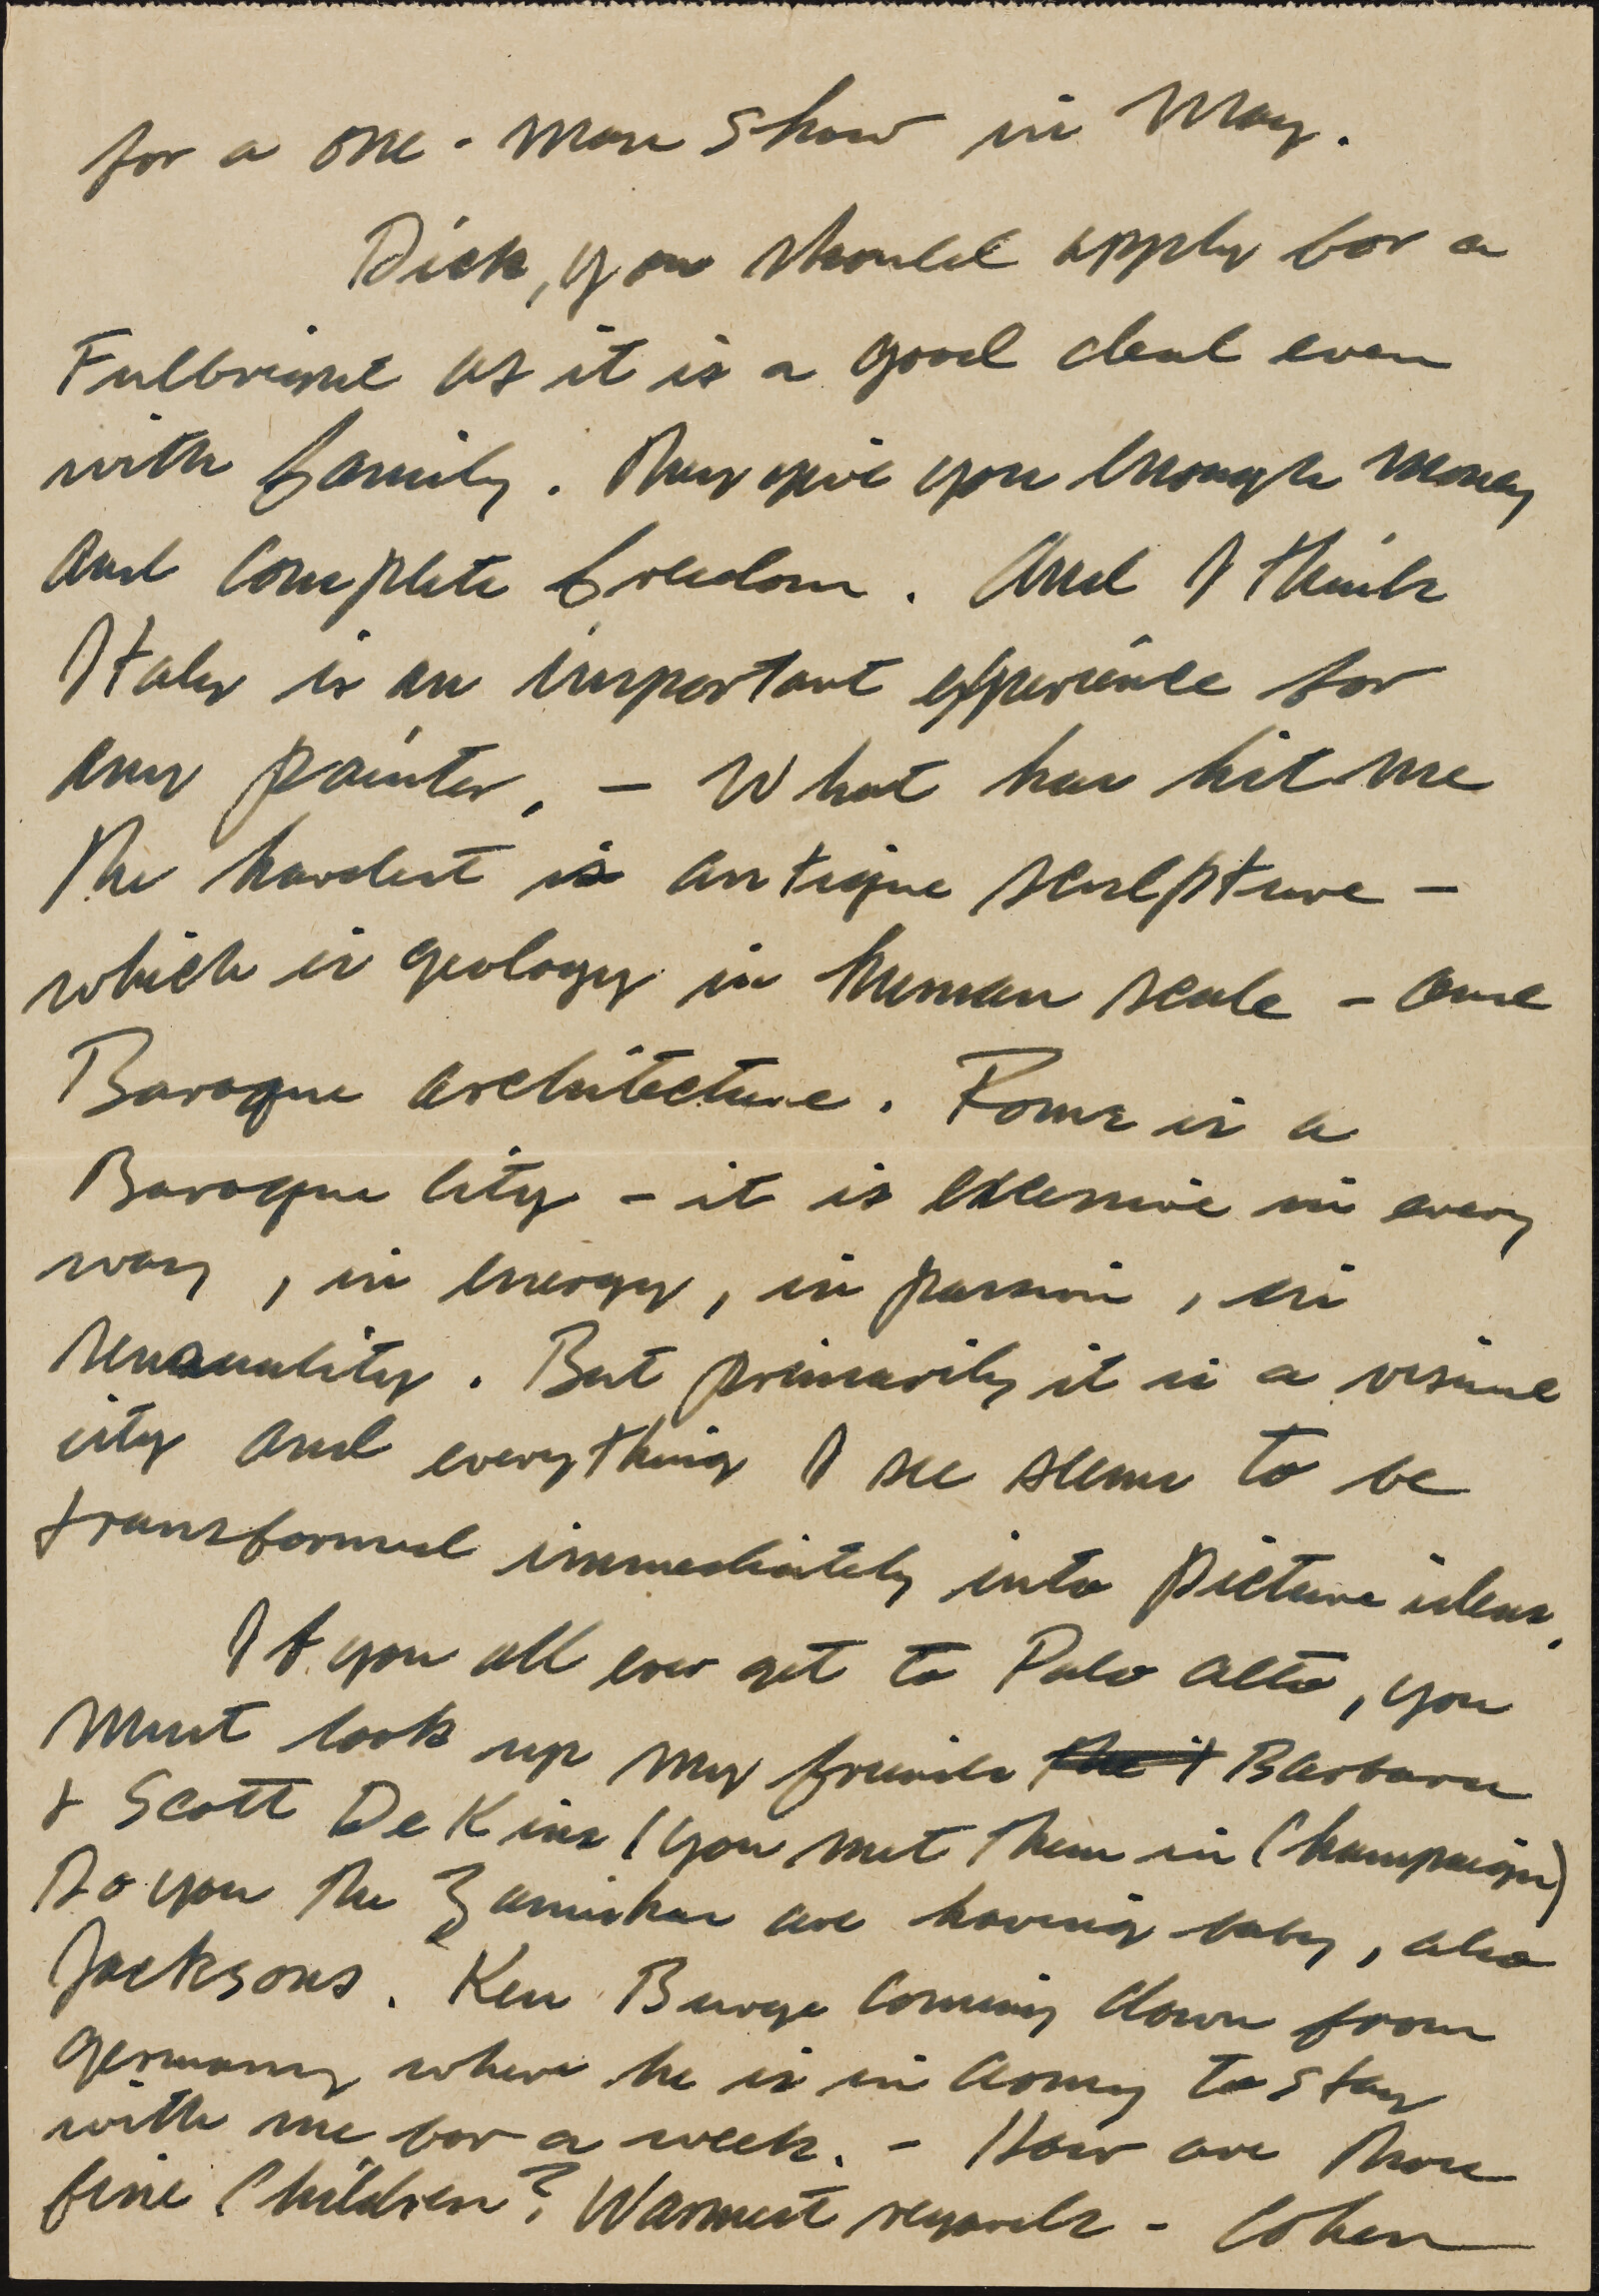 for a one-man show in May.
Dick, you should apply for a
Fulbright as it is a good deal even
with family. They give you enough money
and complete freedom. And I think
Italy is an important experience for
any painter. – What has hit me
the hardest is antique sculpture –
which is geology in human scale – and
Baroque architecture. Rome is a
Baroque city – it is excessive in every
way, in energy, in passion, in
sensuality. But primarily it is a visual
city and everything I see seems to be
transformed immediately into picture ideas.
If you all ever get to Palo Alto, you
must look up my friends Barbara
+ Scott (you met them in Champaign)
So you the are having baby, also
Jacksons. Ken coming down from
Germany where he is in army to stay
with me for a week. – How are those
fine children? Warmest regards – Cohen